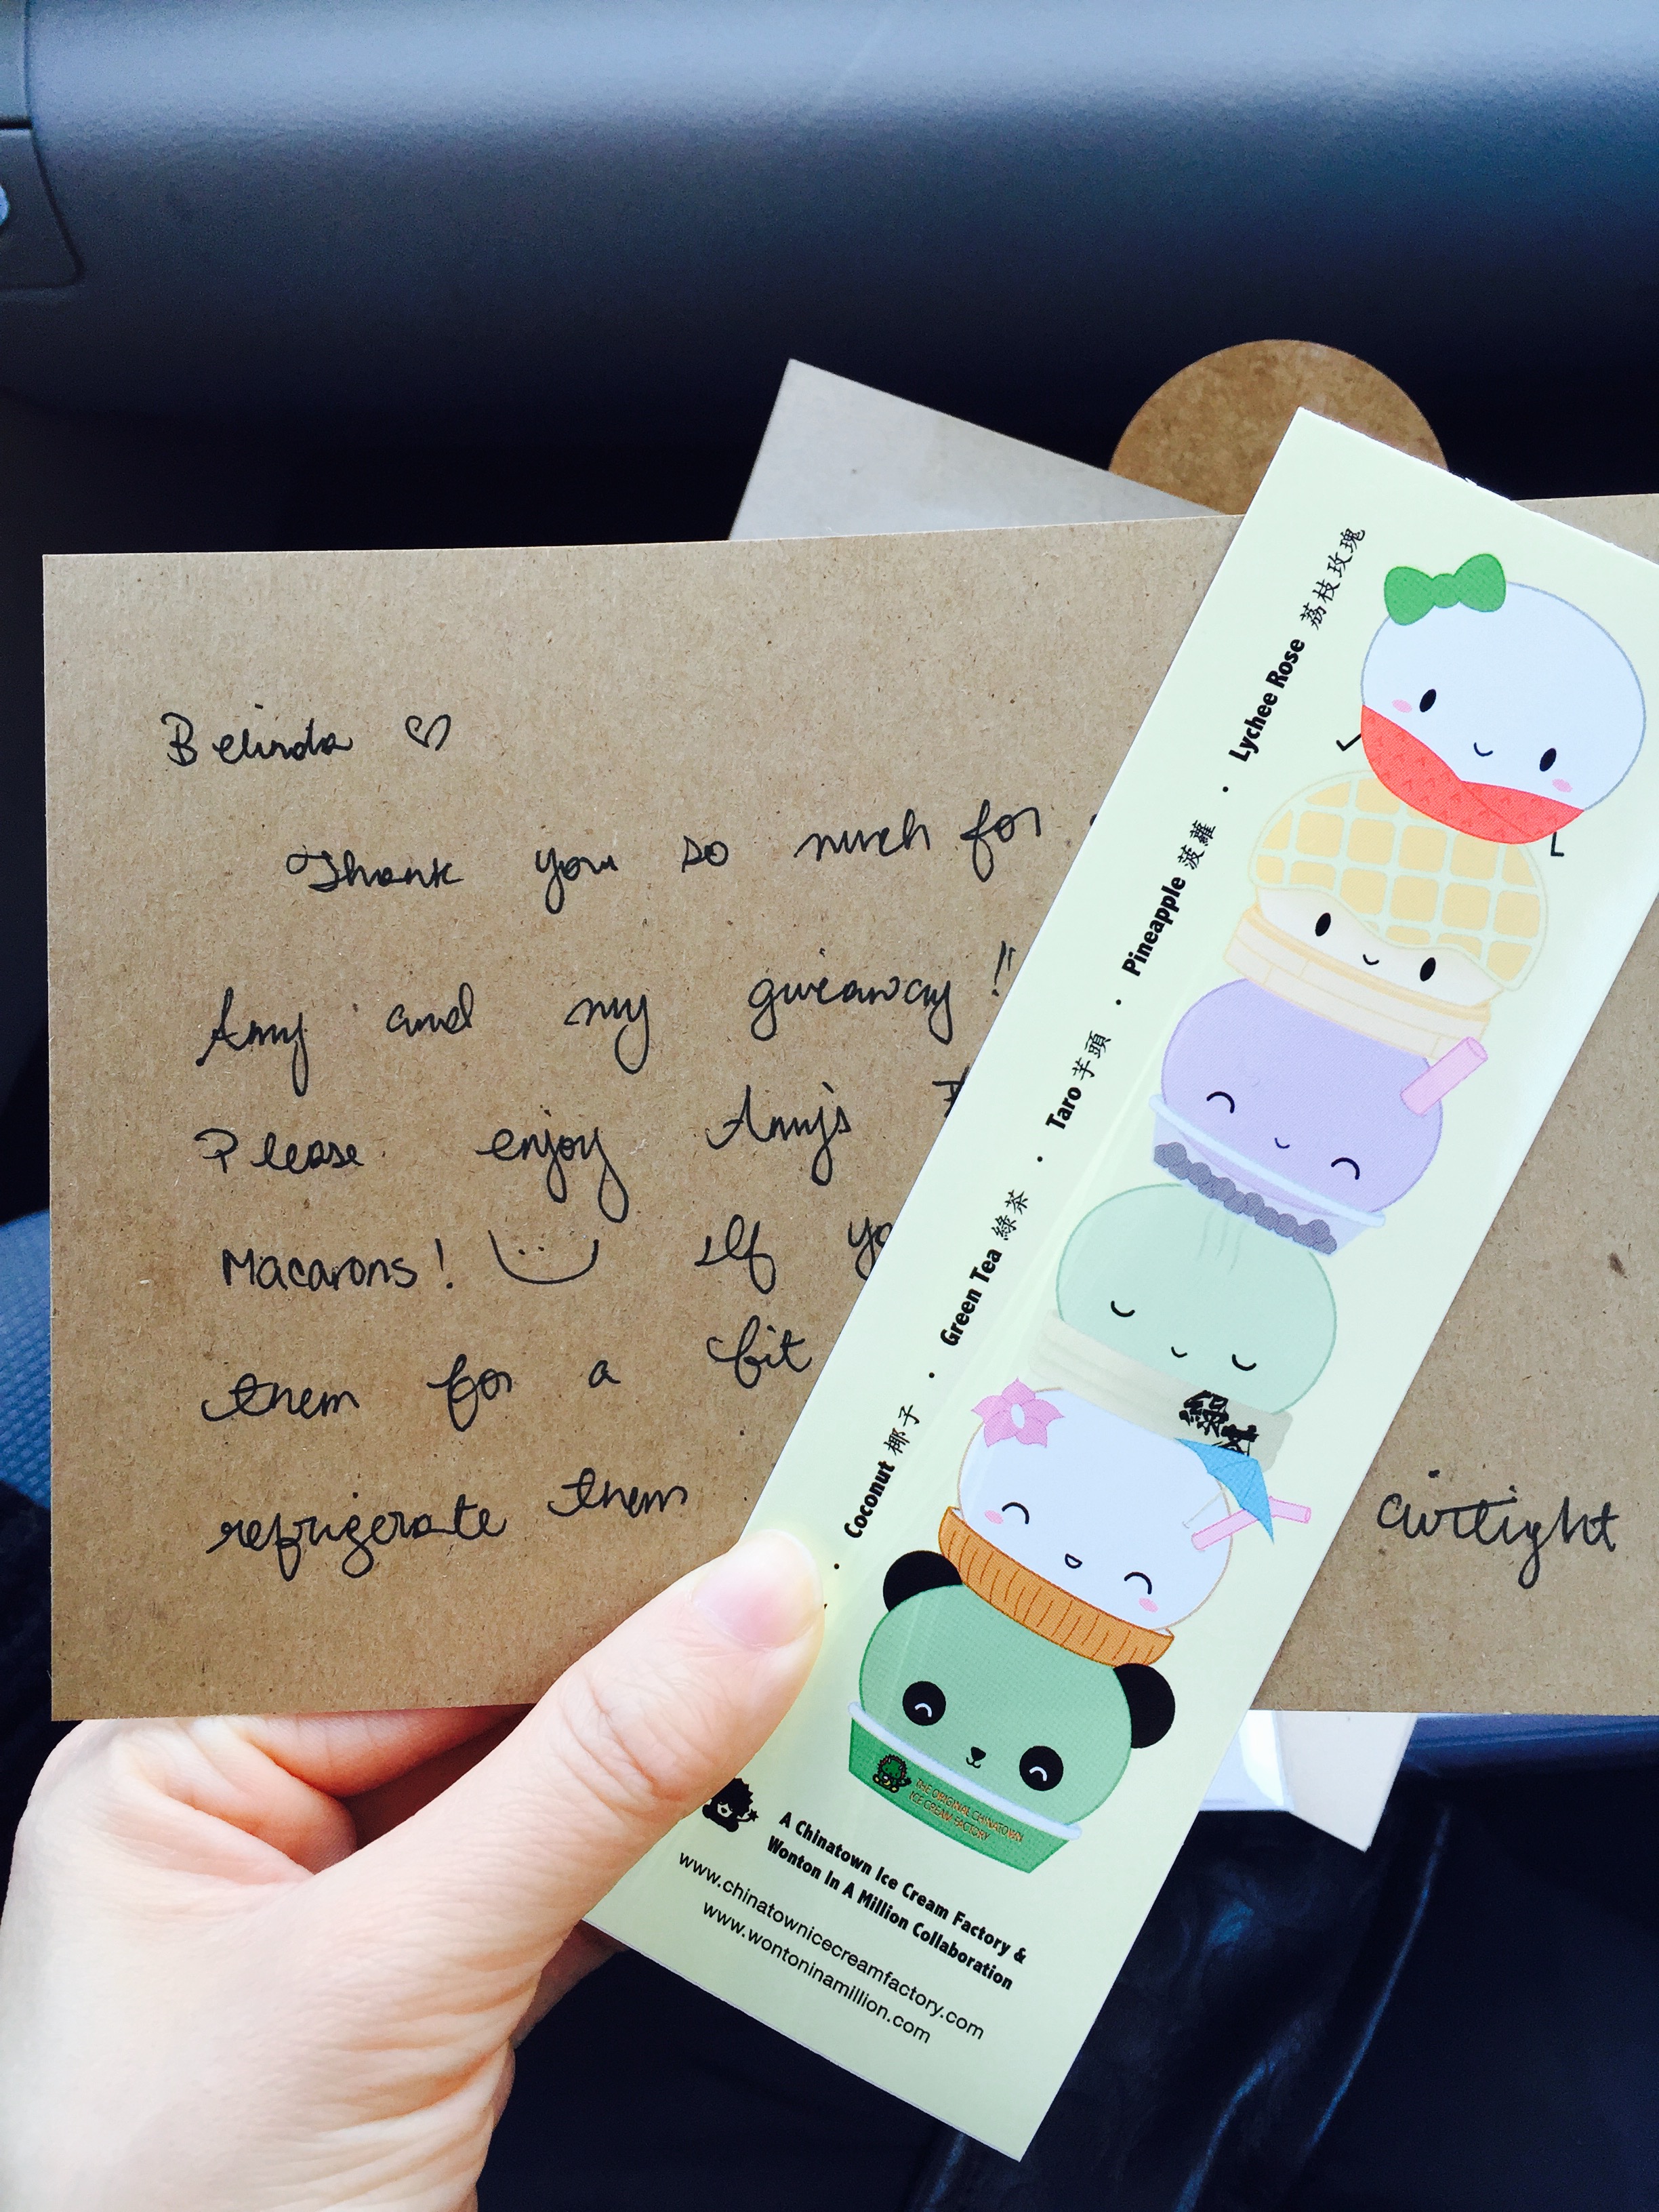 Belinda ♡
Thank you so much for
Amy and my giveaway!!
Please enjoy Amy's
Macarons! If
them for a bit
refrigerate them
airtight
Lychee Rose 荔枝玫瑰
Pineapple 菠蘿 ·
Taro 芋頭 ·
Green Tea 綠茶 ·
Coconut 椰子 ·
綠茶
THE ORIGINAL CHINATOWN
ICE CREAM FACTORY
A Chinatown Ice Cream Factory &
Wonton In A Million Collaboration
www.chinatownicecreamfactory.com
www.wontoninamillion.com